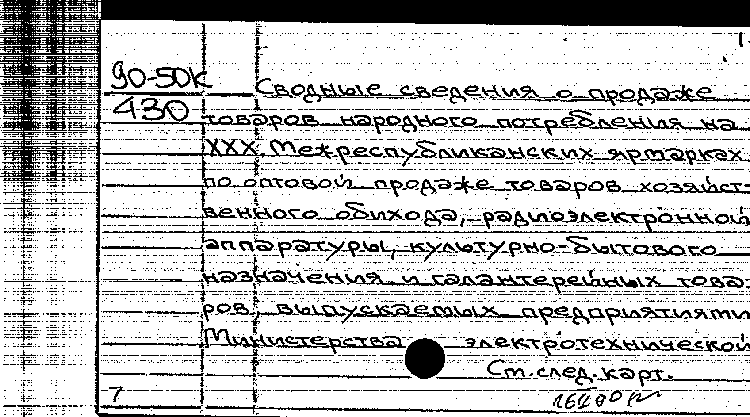 90-50К
430
Сводные сведения о продаже
товаров народного потребления на
XXX Межреспубликанских ярмарках
по оптовой продаже товаров хозяйст-
венного обихода, радиоэлектронной
аппаратуры, культурно-бытового
назначения и галантерейных това-
ров, выпускаемых предприятиями
Министерства электротехнической
См. след. карт.
7